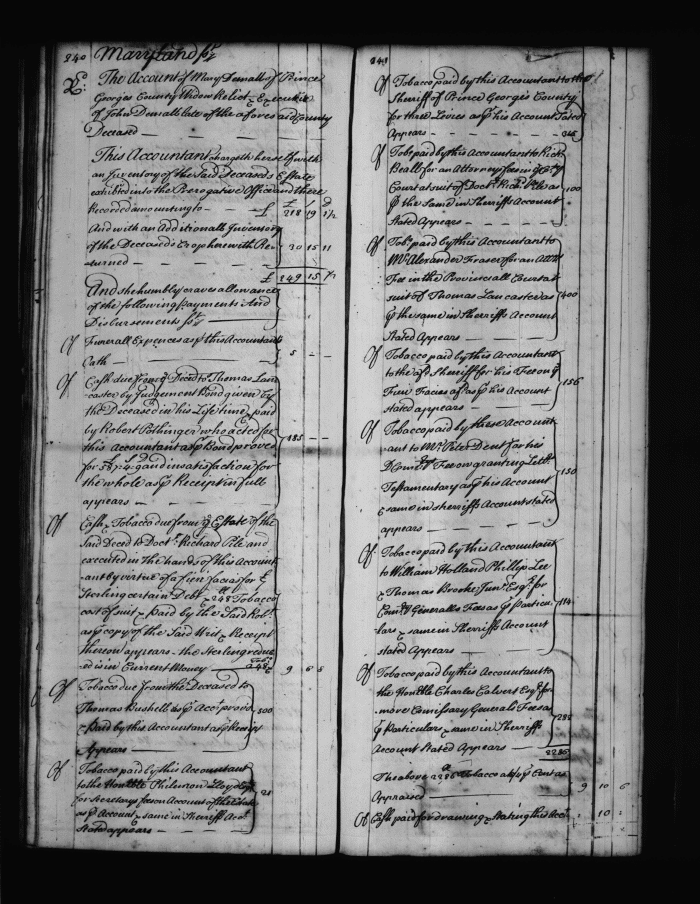 240 Maryland Sst
The Account of Mary Demall of Prince
Georges County Widow Relict & Executrix
of John Demall late of the aforesaid County
Deceased
This Accountant chargeth herself with
an Inventory of the Said Deceaseds Estate
exhibited into the Prerogative Office and there
Recorded amounting to £ 218 19 1½
And with an Additionall Inventory
of the Deceaseds Crop herewith Re- 30 15 11
turned
£ 249 15 ½
And she humbly craves allowance
of the following payments And
Disbursements Sst
Of Funerall Expences as p this Accountants 5 - -
Oath
Of Cash due from ye Deced to Thomas Lan
caster by Judgement Bond given by
the Deceased in his Life time & paid
by Robert Pottinger who acted for
this Accountant as p Bond proved 185 - -
for and in satisfaction for
the whole as p Receipt in full
appears
Of Cash & Tobacco due from ye Estate of the
Said Deced to Doctr Richard Pile and
executed in the hands of this Account
ant by virtue of a fieri facias for £
Sterling certain Debt & 248 Tobacco
cost of suit & paid by the Said Robt
as p copy of the Said Writ & Receipt
thereon appears the Sterling reduc
ed in Current Money 248 9 6 8
Of Tobacco due from the Deceased to
Thomas Bushell as p Acct proved 500
& Paid by this Accountant as p Receipt
Appears
Of Tobacco paid by this Accountant
to the Honble Philemon Lloyd Esqr
for Secretarys fees on Account of the Estate 21
as p Account & same in Sherriffs Acct
Stated appears
241
Of Tobacco paid by this Accountant to the
Sherriff of Prince Georges County
for three Levies as p his Account Stated
Appears 315
Of Tobo paid by this Accountant to Richd
Beall for an Attorneys fee in ye Coty
Court at suit of Doctr Richd Pile as 100
p the Same in Sherriffs Account
Stated Appears
Of Tobo paid by this Accountant to
Mr Alexander Fraser for an Attrs
Fee in the Provinciall Court at
suit of Thomas Lancaster as 400
p the same in Sherriffs Account
Stated Appears
Of Tobacco paid by this Accountant
to the afd Sherriff for his Fee on ye
Fieri Facias afd as p his Account 156
stated appears
Of Tobacco paid by these Account
ant to Mr Peter Dent for his
Fee on granting Lettrs 150
Testamentary as p his Account
& same in Sherriffs Account stated
appears
Of Tobacco paid by this Accountant
to William Holland Phillip Lee
& Thomas Brooke Junr Esqrs for
Comry Generalls Fees as p Particu- 114
lars & same in Sherriffs Account
stated Appears
Of Tobacco paid by this Accountant
to the Honble Charles Calvert Esqr for-
more Comissary Generals Fees as
p Particulars & same in Sherriffs 282
Account Stated Appears 2286
The above 2286 Tobacco at p Cent as
Appraised 9 10 6
Of Cash paid for drawing & Stating this Acct : 10 :